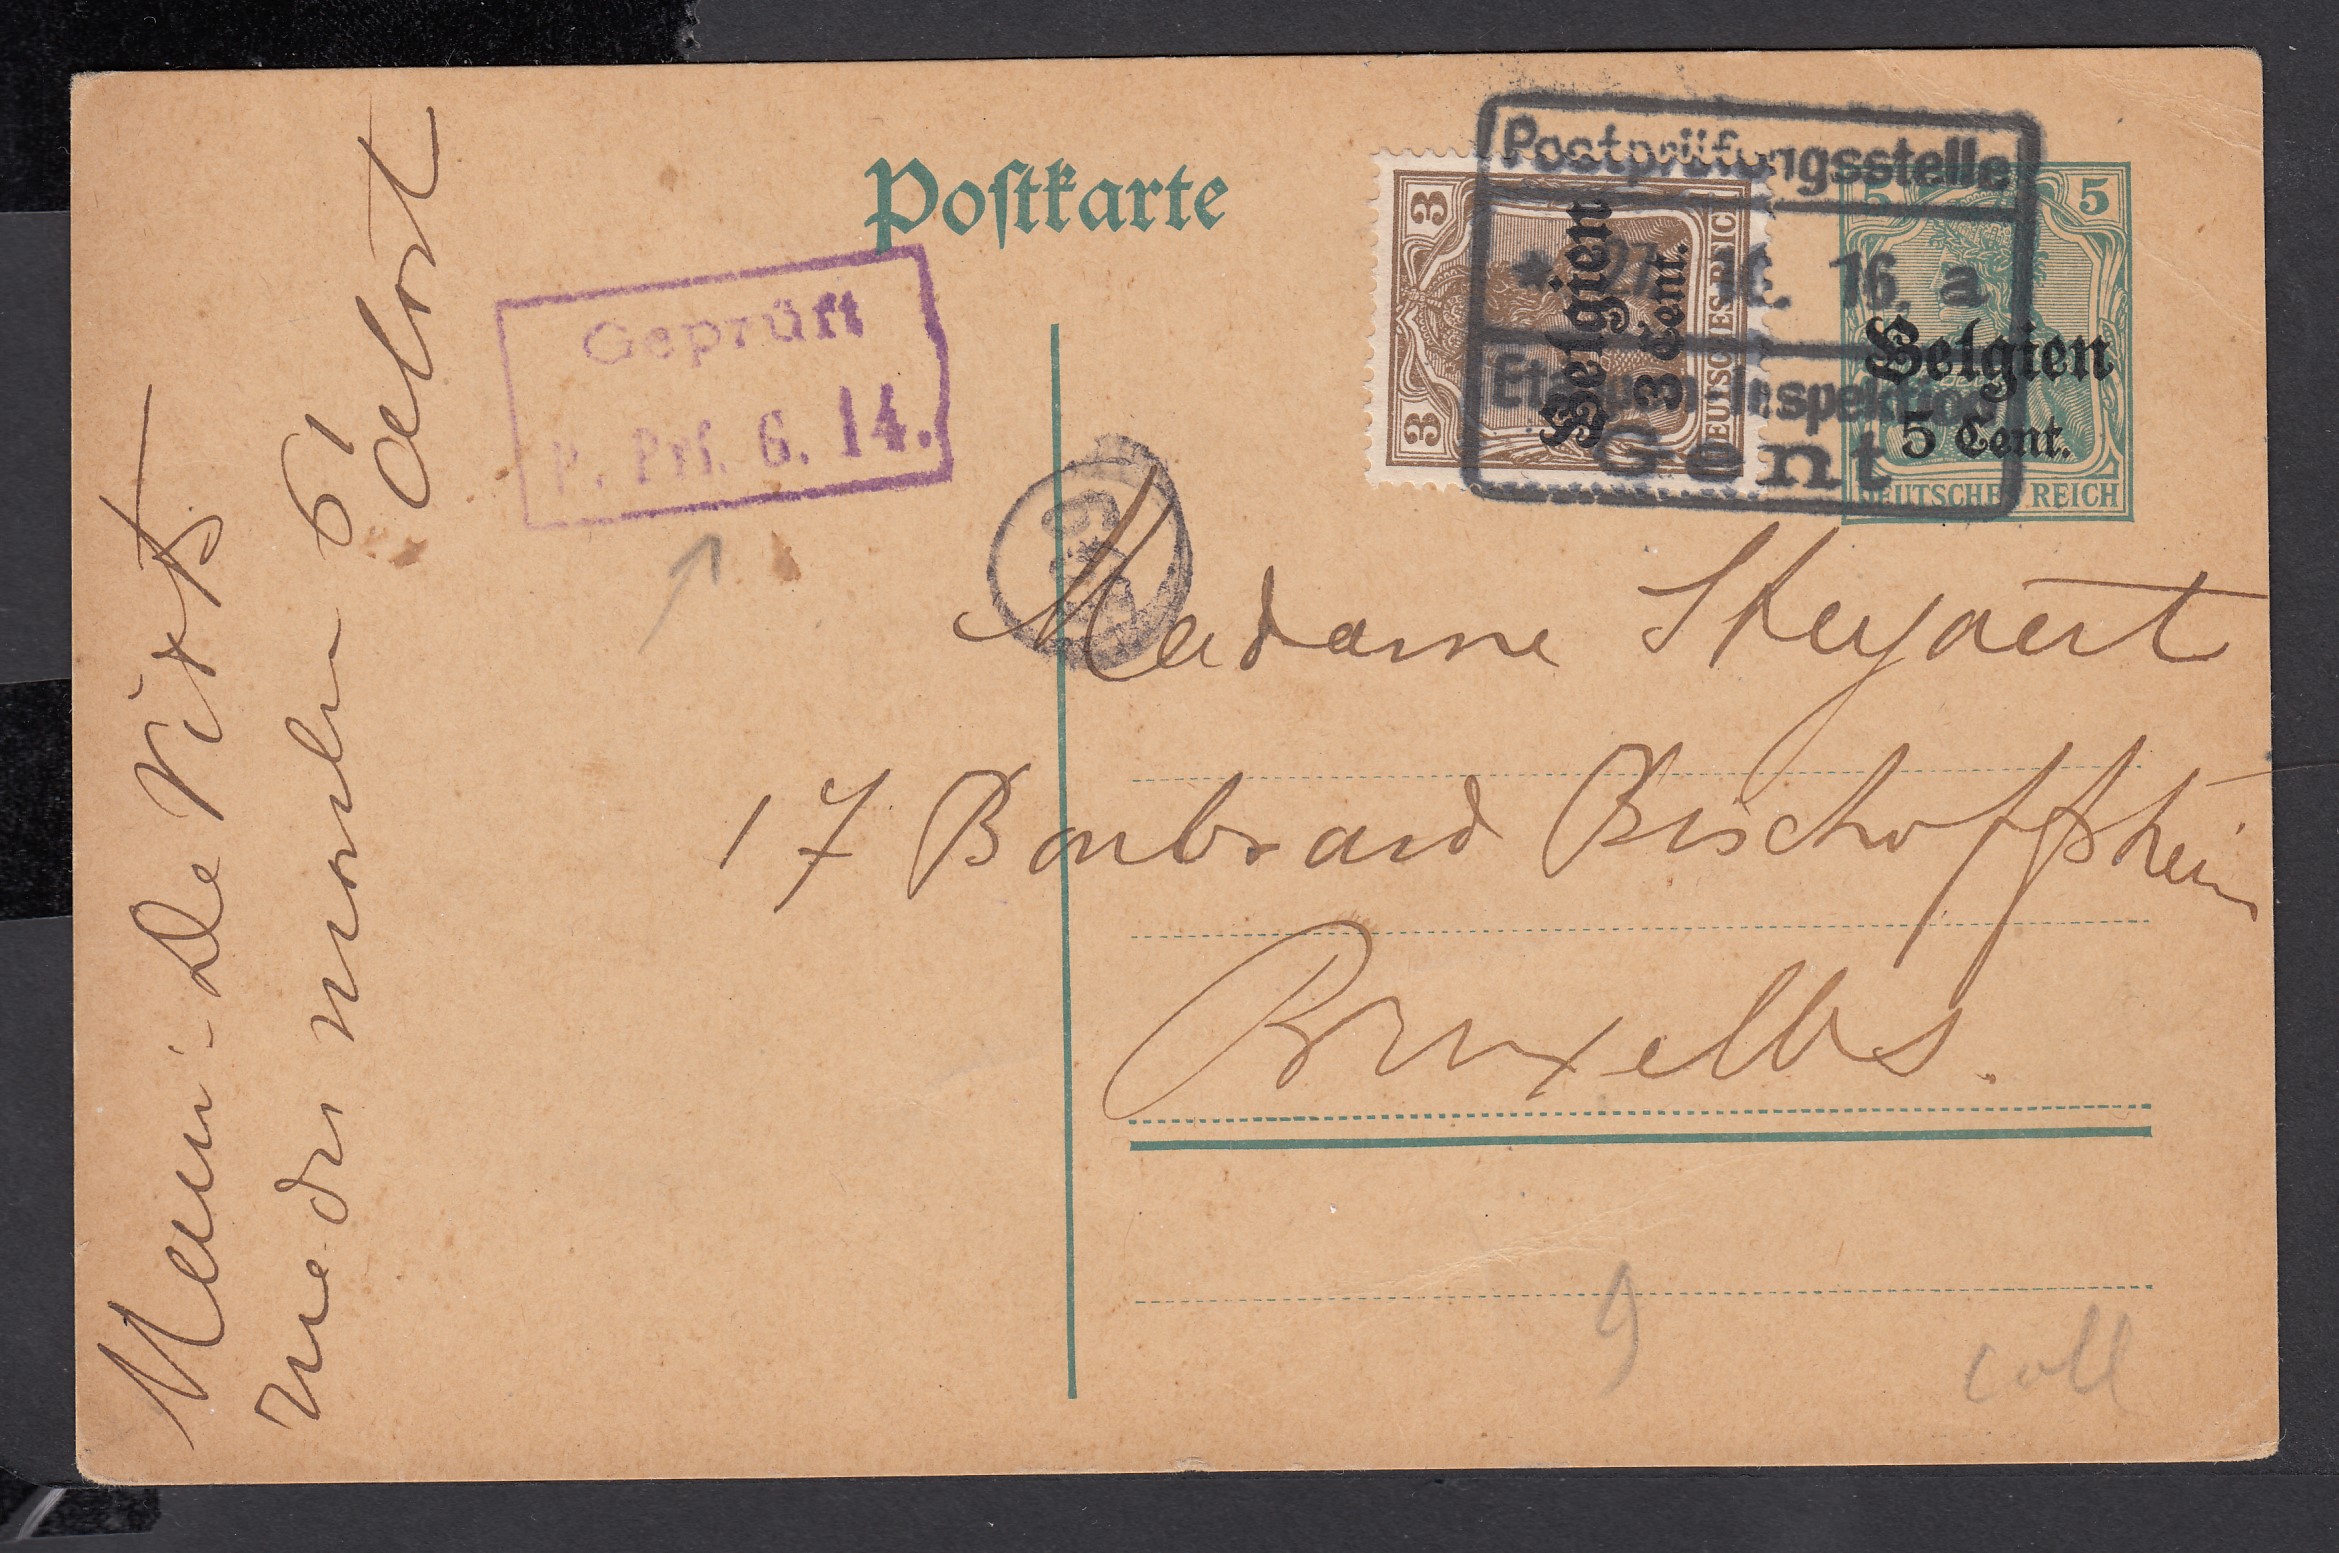 Postkarte
Postprüfungsstelle
* 27. 16. a
Etappen-Inspektion
Gent
3
3
Belgien
3 Cent.
DEUTSCHES REICH
5 5
Belgien
5 Cent.
DEUTSCHES REICH
Geprüft
P. Prf. G. 14.
Madame Steyaert
17 Boulevard Bischoffshein
Bruxelles.
De
rue des 61
9
coll